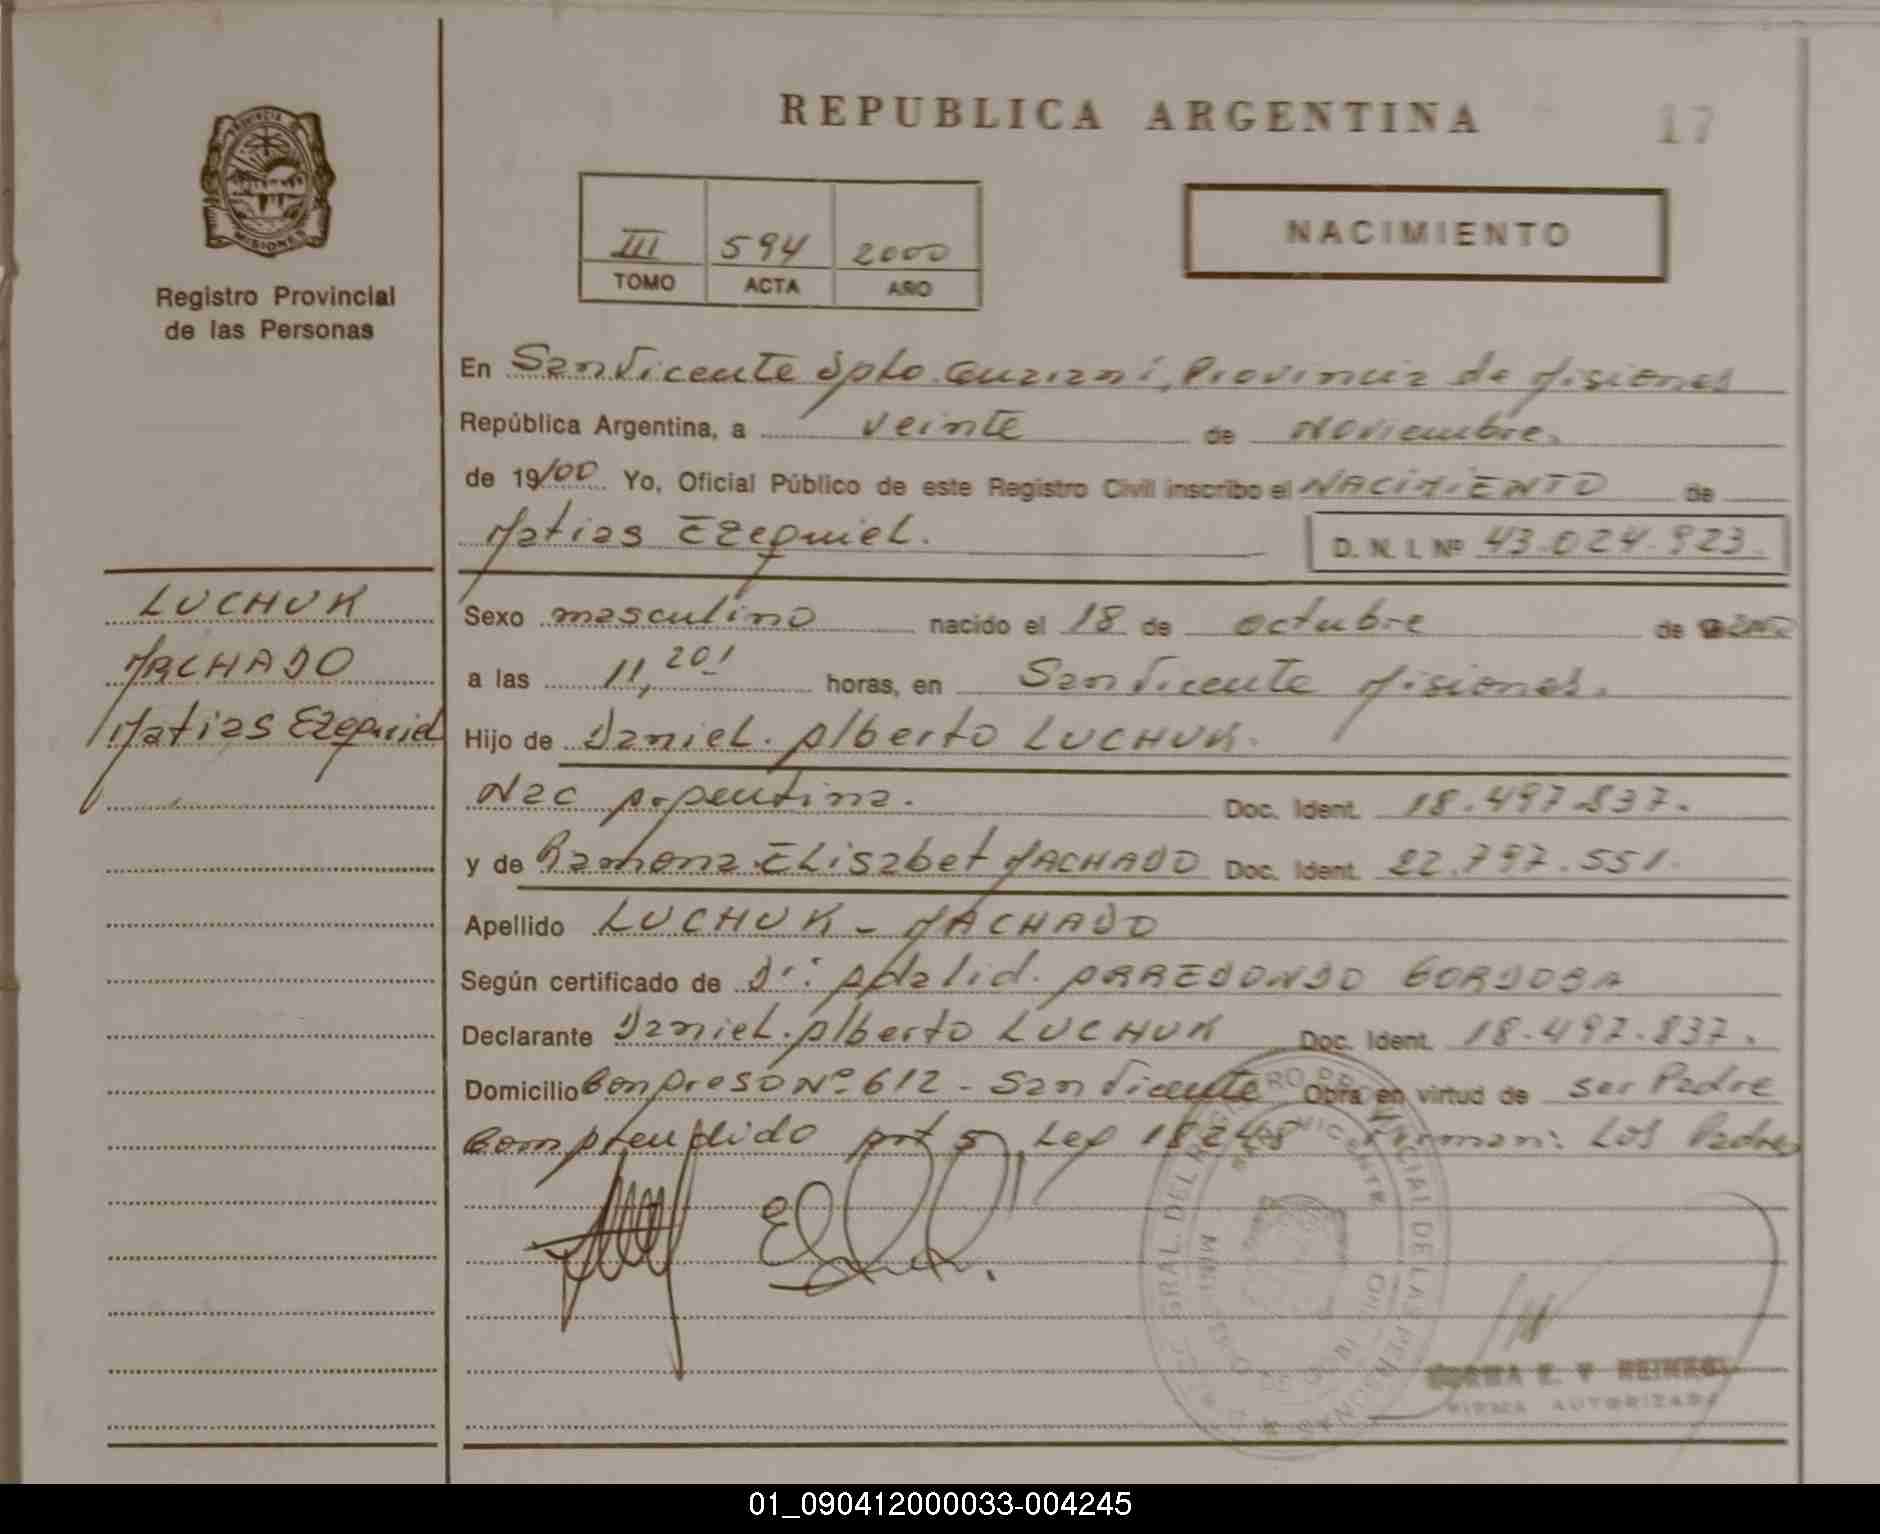 REPUBLICA ARGENTINA
17
PROVINCIA DE
MISIONES
Registro Provincial
de las Personas
III 594 2000
TOMO ACTA AÑO
NACIMIENTO
En San Vicente Dpto. Guaraní, Provincia de Misiones
República Argentina, a veinte de Noviembre.
de 19/00 Yo, Oficial Público de este Registro Civil inscribo el NACIMIENTO de
Matias Ezequiel. D. N. I. Nº 43.024.923.
LUCHUK
MACHADO
Matias Ezequiel
Sexo masculino nacido el 18 de octubre de 2000
a las 11,20' horas, en San Vicente Misiones.
Hijo de Daniel. Alberto LUCHUK.
Nac Argentina. Doc. Ident. 18.497.837.
y de Ramona Elisabet MACHADO Doc. Ident. 22.797.551.
Apellido LUCHUK - MACHADO
Según certificado de Dr: Adalid. ARREDONDO CORDOBA
Declarante Daniel. Alberto LUCHUK Doc. Ident. 18.497.837.
Domicilio Congreso Nº 612 - San Vicente Obra en virtud de ser Padre
Comprendido Art 5, Ley 18248 Firman: Los Padres
SAN VICENTE
MISIONES
FIRMA AUTORIZADA
01_090412000033-004245